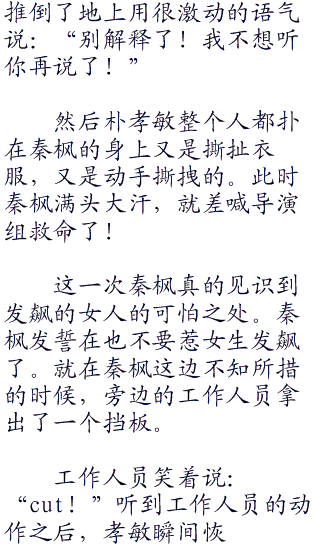 推倒了地上用很激动的语气
说：“别解释了！我不想听
你再说了！”
然后朴孝敏整个人都扑
在秦枫的身上又是撕扯衣
服，又是动手撕拽的。此时
秦枫满头大汗，就差喊导演
组救命了！
这一次秦枫真的见识到
发飙的女人的可怕之处。秦
枫发誓在也不要惹女生发飙
了。就在秦枫这边不知所措
的时候，旁边的工作人员拿
出了一个挡板。
工作人员笑着说：
“cut！”听到工作人员的动
作之后，孝敏瞬间恢